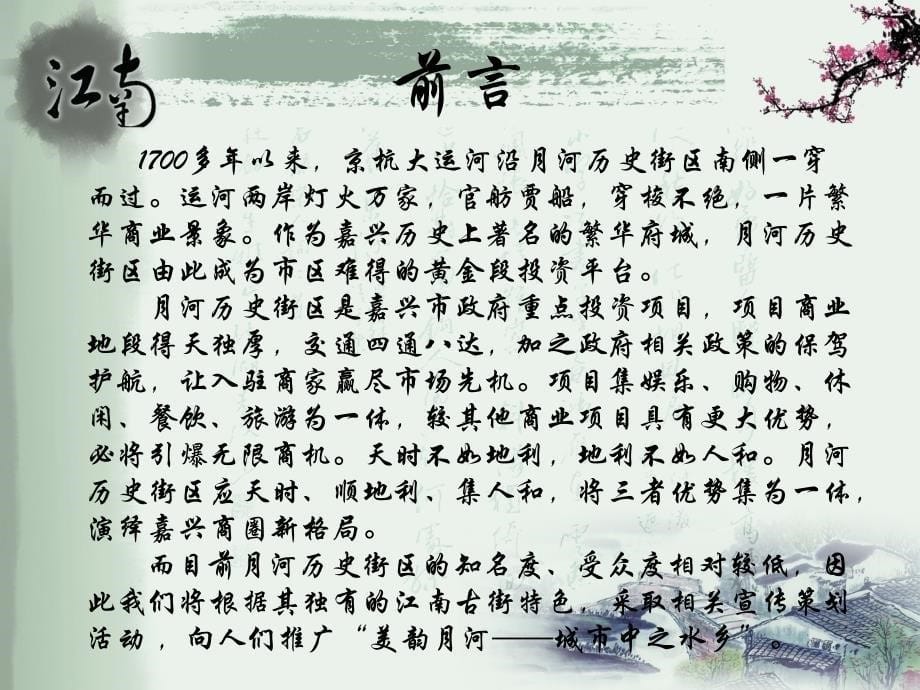 江南
前言
1700多年以来，京杭大运河沿月河历史街区南侧一穿
而过。运河两岸灯火万家，官舫贾船，穿梭不绝，一片繁
华商业景象。作为嘉兴历史上著名的繁华府城，月河历史
街区由此成为市区难得的黄金段投资平台。
月河历史街区是嘉兴市政府重点投资项目，项目商业
地段得天独厚，交通四通八达，加之政府相关政策的保驾
护航，让入驻商家赢尽市场先机。项目集娱乐、购物、休
闲、餐饮、旅游为一体，较其他商业项目具有更大优势，
必将引爆无限商机。天时不如地利，地利不如人和。月河
历史街区应天时、顺地利、集人和，将三者优势集为一体，
演绎嘉兴商圈新格局。
而目前月河历史街区的知名度、受众度相对较低，因
此我们将根据其独有的江南古街特色，采取相关宣传策划
活动，向人们推广“美韵月河——城市中之水乡”。